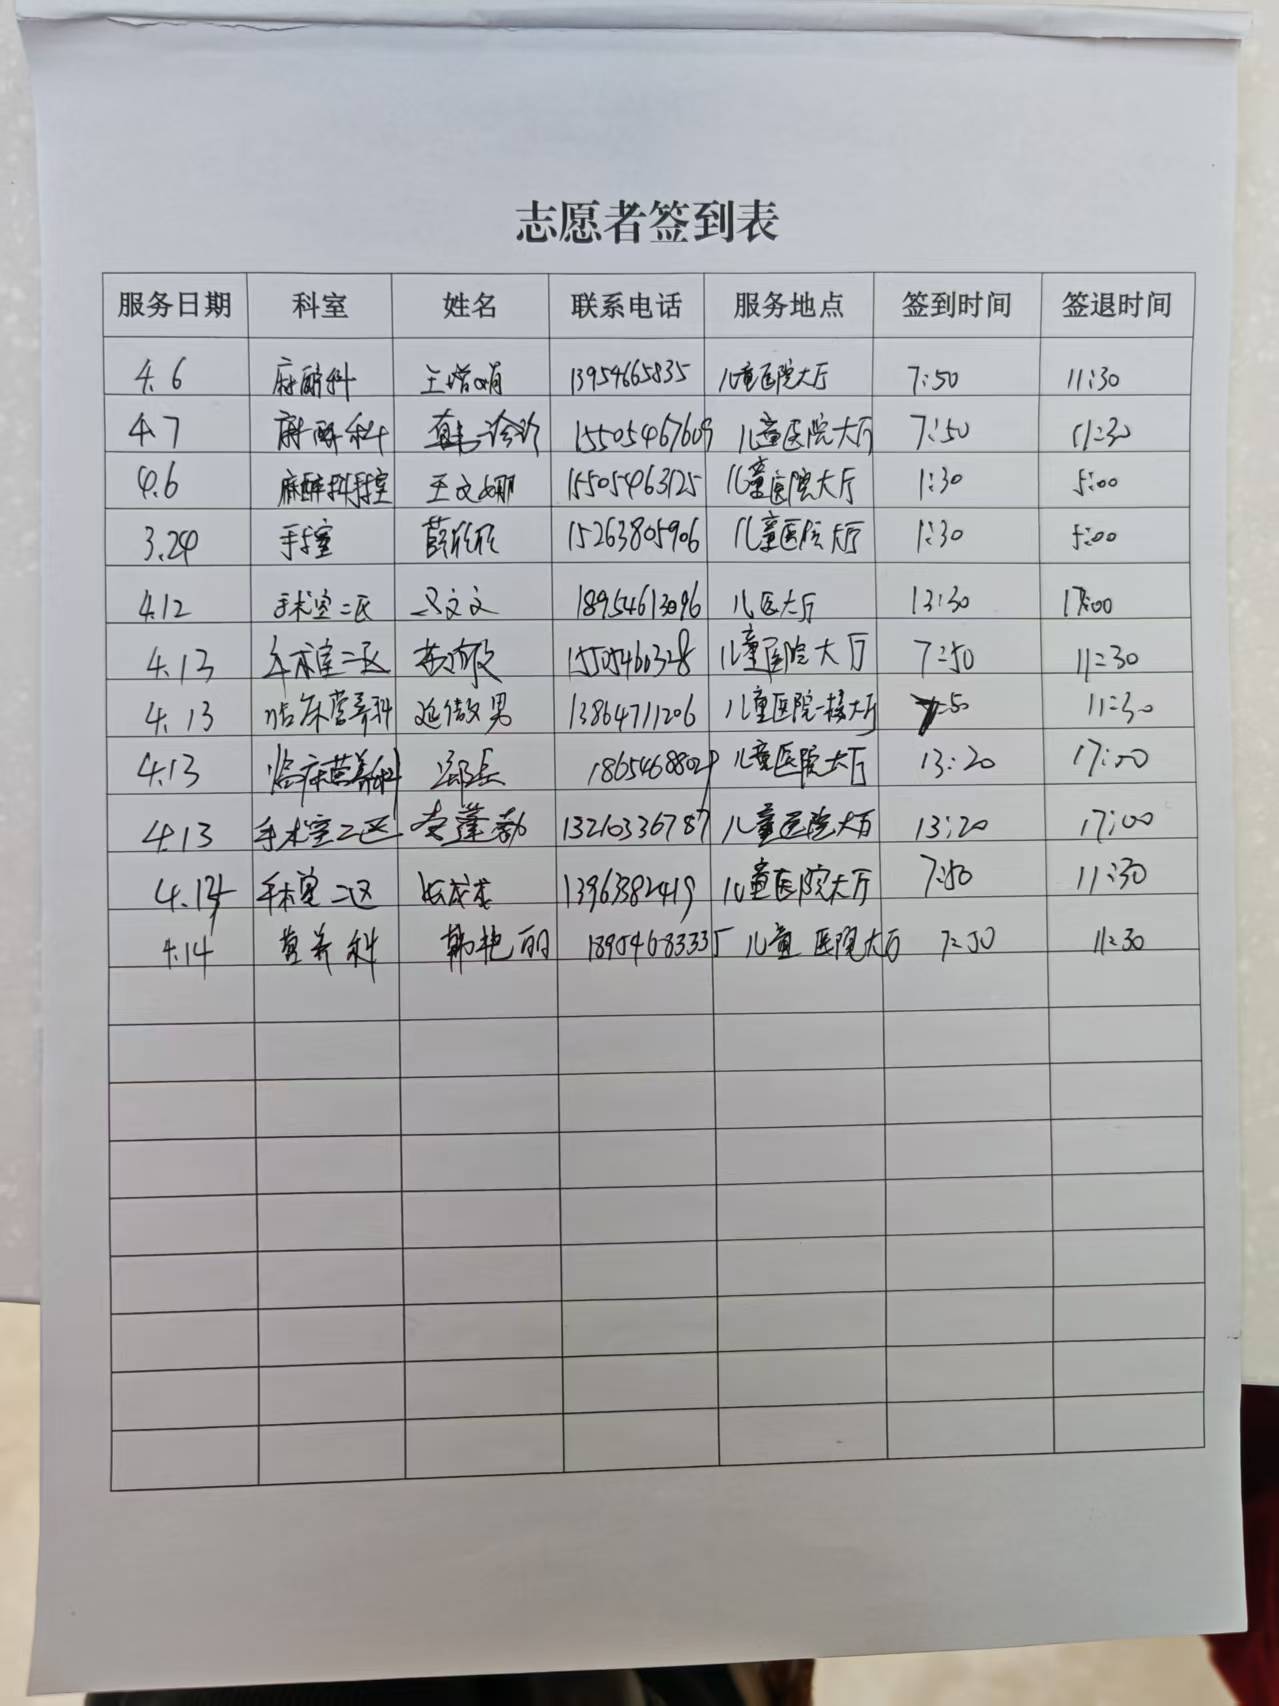 志愿者签到表
服务日期 科室 姓名 联系电话 服务地点 签到时间 签退时间
4.6 麻醉科 王增娟 13954665835 儿童医院大厅 7:50 11:30
4.7 麻醉科 15505467609 儿童医院大厅 7:50 11:30
4.6 麻醉科手术室 王文娜 15505463125 儿童医院大厅 1:30 5:00
3.24 手术室 薛欣欣 15263805906 儿童医院大厅 1:30 5:00
4.12 手术室二区 文文 18954613096 儿医大厅 13:30 17:00
4.13 手术室二区 15505460328 儿童医院大厅 7:50 11:30
4.13 临床营养科 延倩男 13864711206 儿童医院一楼大厅 7:50 11:30
4.13 临床营养科 儿童医院大厅 13:20 17:00
4.13 手术室二区 13210336787 儿童医院大厅 13:20 17:00
4.14 手术室二区 13963382419 儿童医院大厅 7:50 11:30
4.14 营养科 韩艳丽 18954683335 儿童医院大厅 7:50 11:30